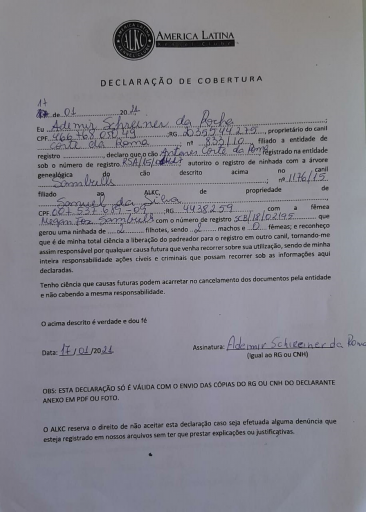 ALKC
AMERICA LATINA
DECLARAÇÃO DE COBERTURA
17 de 01 2021
Eu Ademir Schreiner da Rocha
CPF RG proprietário do canil
Corte da Roma nº 835/10, filiado a entidade de
registro, declaro que o cão Antonios Corte da Roma registrado na entidade
sob o número de registro autorizo o registro de ninhada com a árvore
genealógica do cão descrito acima no canil
Sambulls nº 1176/15
filiado ao ALKC, de propriedade de
Samuel da Silva
CPF RG 4438259 com a fêmea
com o número de registro que
gerou uma ninhada de 2 filhotes, sendo 2 machos e 0 fêmeas; e reconheço
que é de minha total ciência a liberação do padreador para o registro em outro canil, tornando-me
assim responsável por qualquer causa futura que venha recorrer sobre sua utilização, sendo de minha
inteira responsabilidade ações civeis e criminais que possam recorrer sob as informações aqui
declaradas.
Tenho ciência que causas futuras podem acarretar no cancelamento dos documentos pela entidade
e não cabendo a mesma responsabilidade.
O acima descrito é verdade e dou fé
Data: 17/01/2021 Assinatura: Ademir Schreiner da
(igual ao RG ou CNH)
OBS: ESTA DECLARAÇÃO SÓ É VÁLIDA COM O ENVIO DAS CÓPIAS DO RG OU CNH DO DECLARANTE
ANEXO EM PDF OU FOTO.
O ALKC reserva o direito de não aceitar esta declaração caso seja efetuada alguma denúncia que
esteja registrado em nossos arquivos sem ter que prestar explicações ou justificativas.